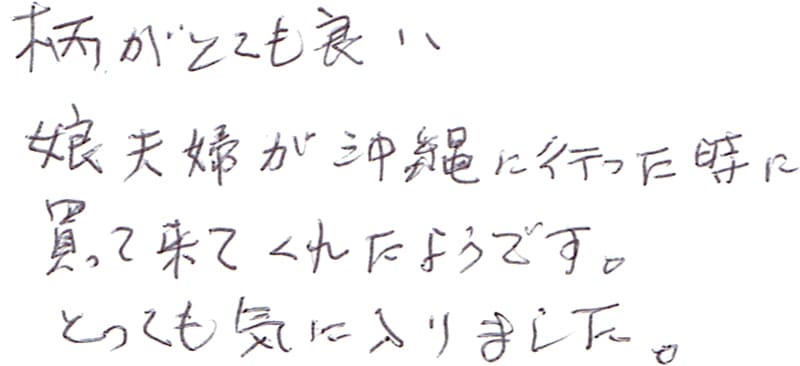 柄がとても良い
娘夫婦が沖縄に行った時に
買って来てくれたようです。
とっても気に入りました。